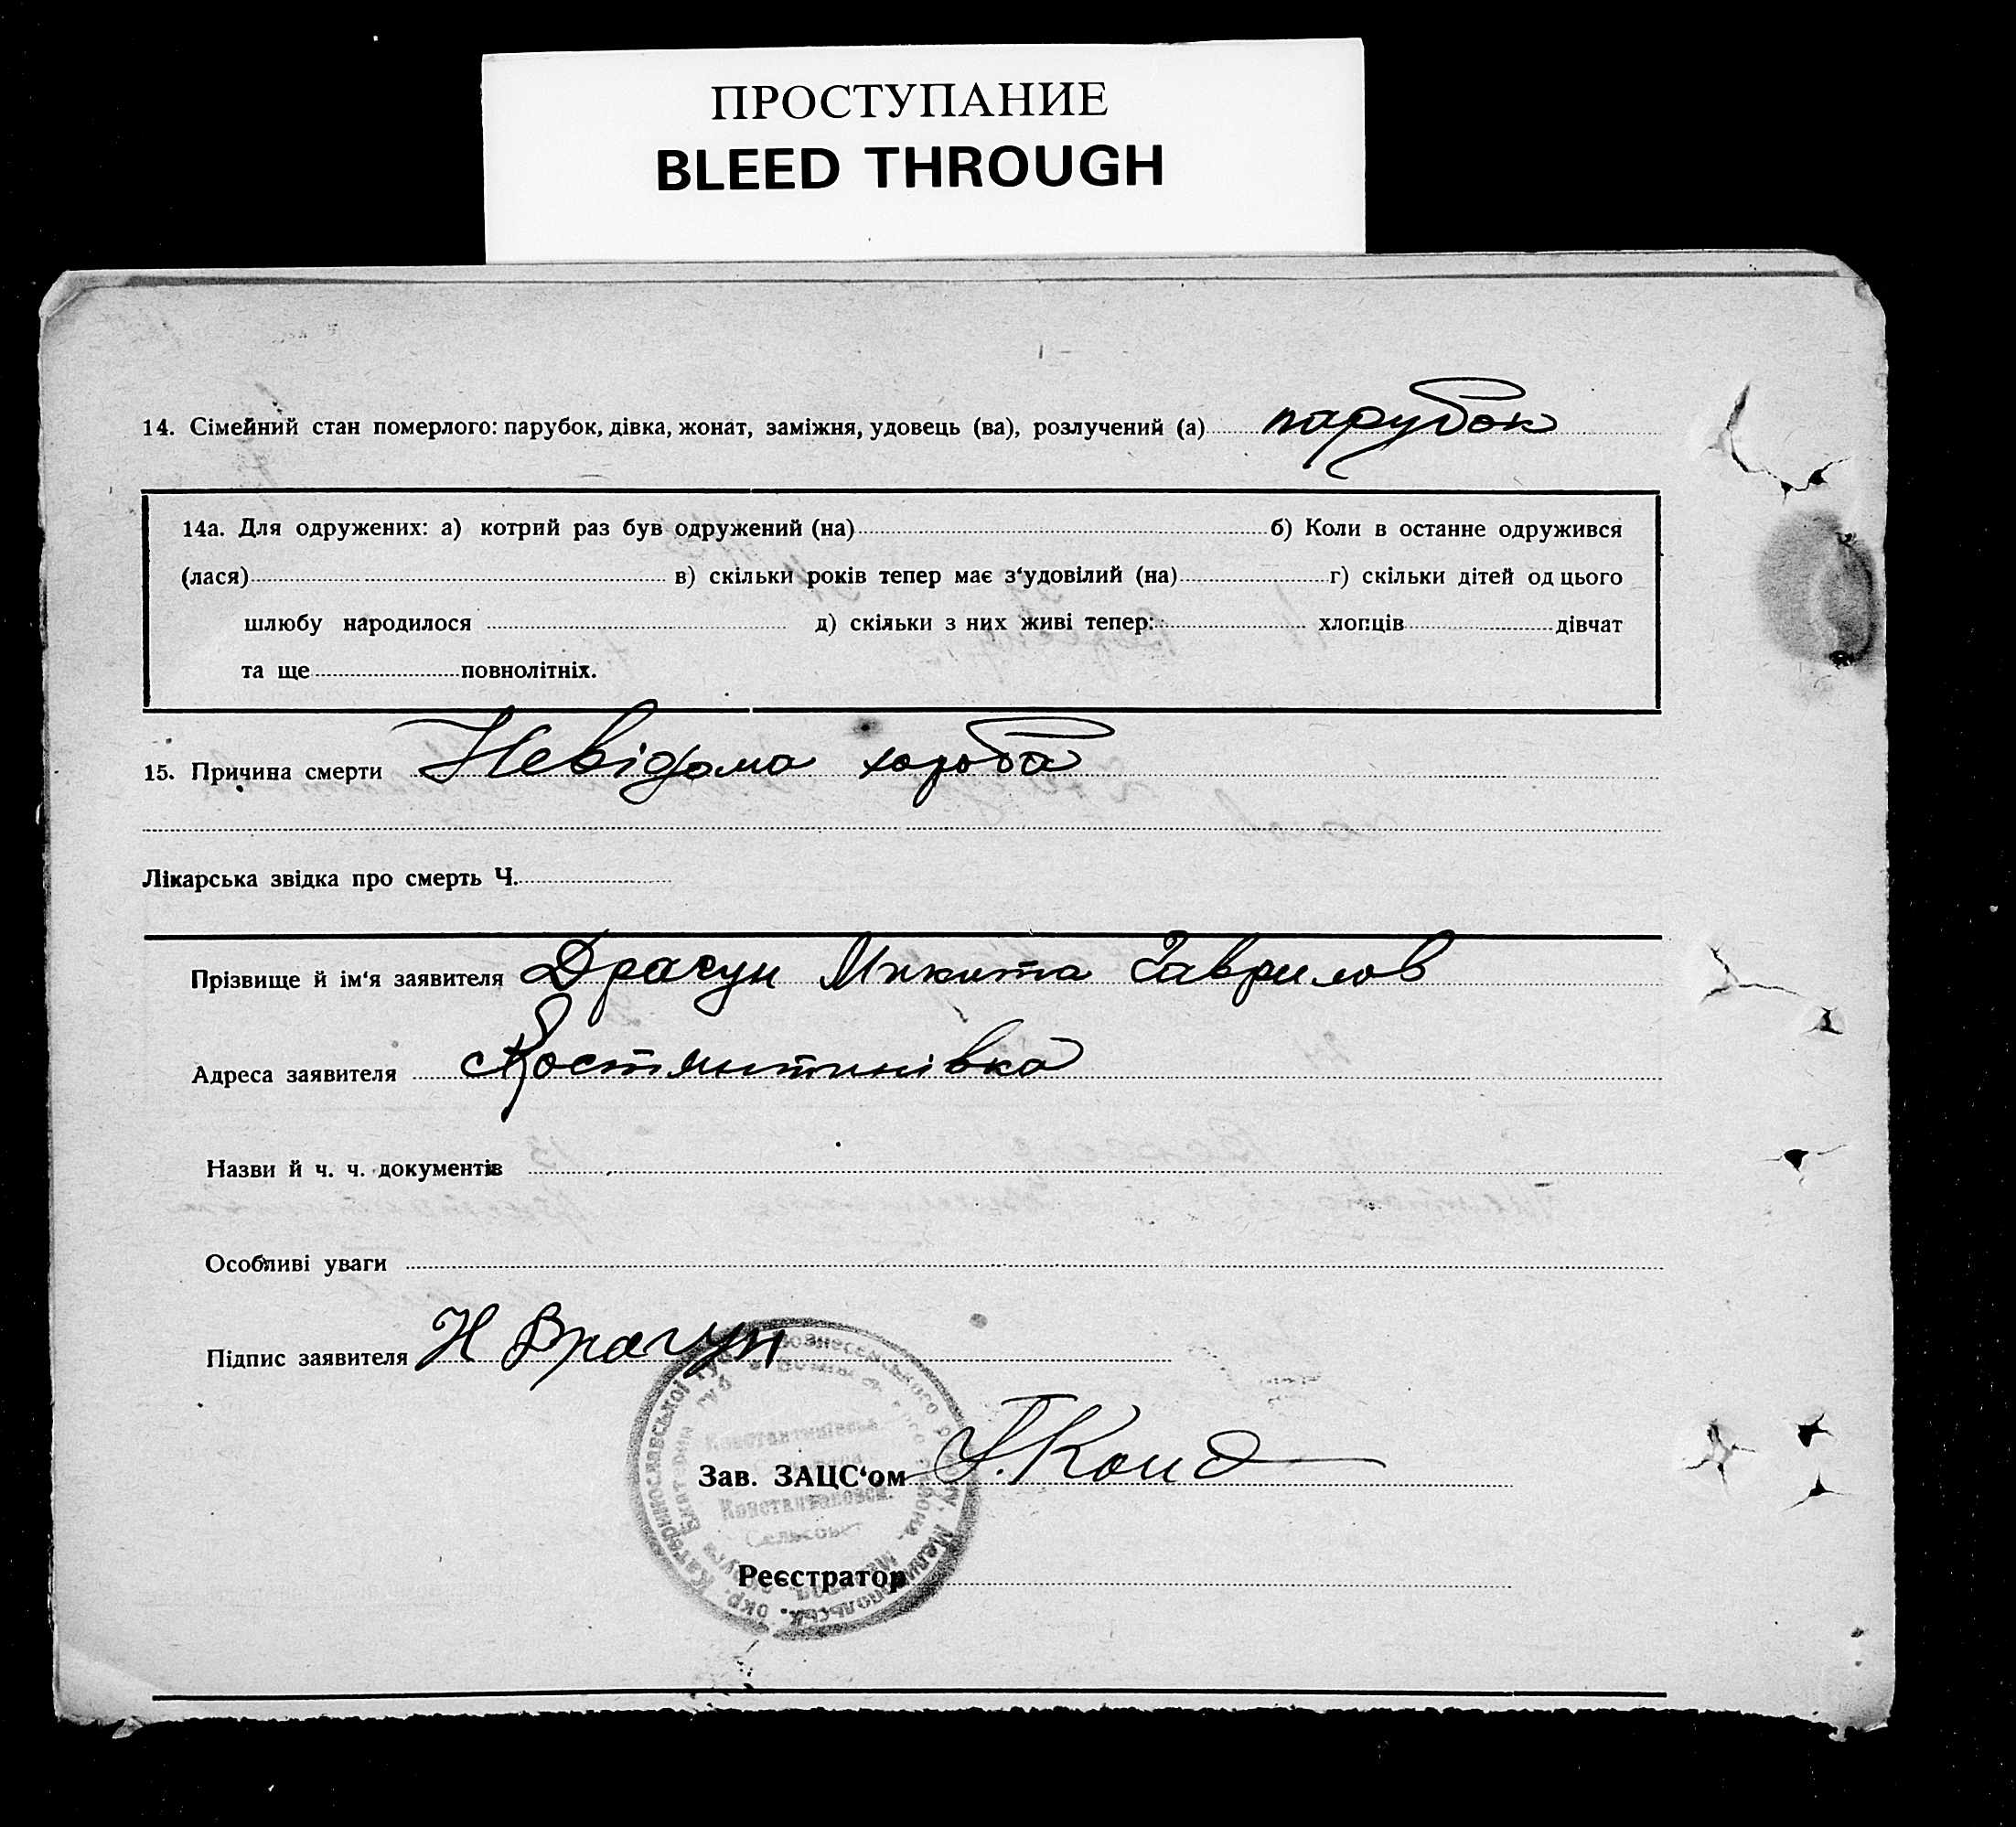 ПРОСТУПАНИЕ
BLEED THROUGH
14. Сімейний стан померлого: парубок, дівка, жонат, заміжня, удовець (ва), розлучений (а) парубок
14а. Для одружених: а) котрий раз був одружений (на) б) Коли в останне одружився
(лася) в) скільки років тепер має з‘удовілий (на) г) скільки дітей од цього
шлюбу народилося д) скільки з них живі тепер: хлопців дівчат
та ще повнолітніх.
15. Причина смерти Невідома хороба
Лікарська звідка про смерть Ч.
Прізвище й ім‘я заявителя Драгун Микита Гаврилов
Адреса заявителя Костянтинівка
Назви й ч. ч. документів
Особливі уваги
Підпис заявителя Н Драгун
Зав. ЗАЦС‘ом
Реєстратор